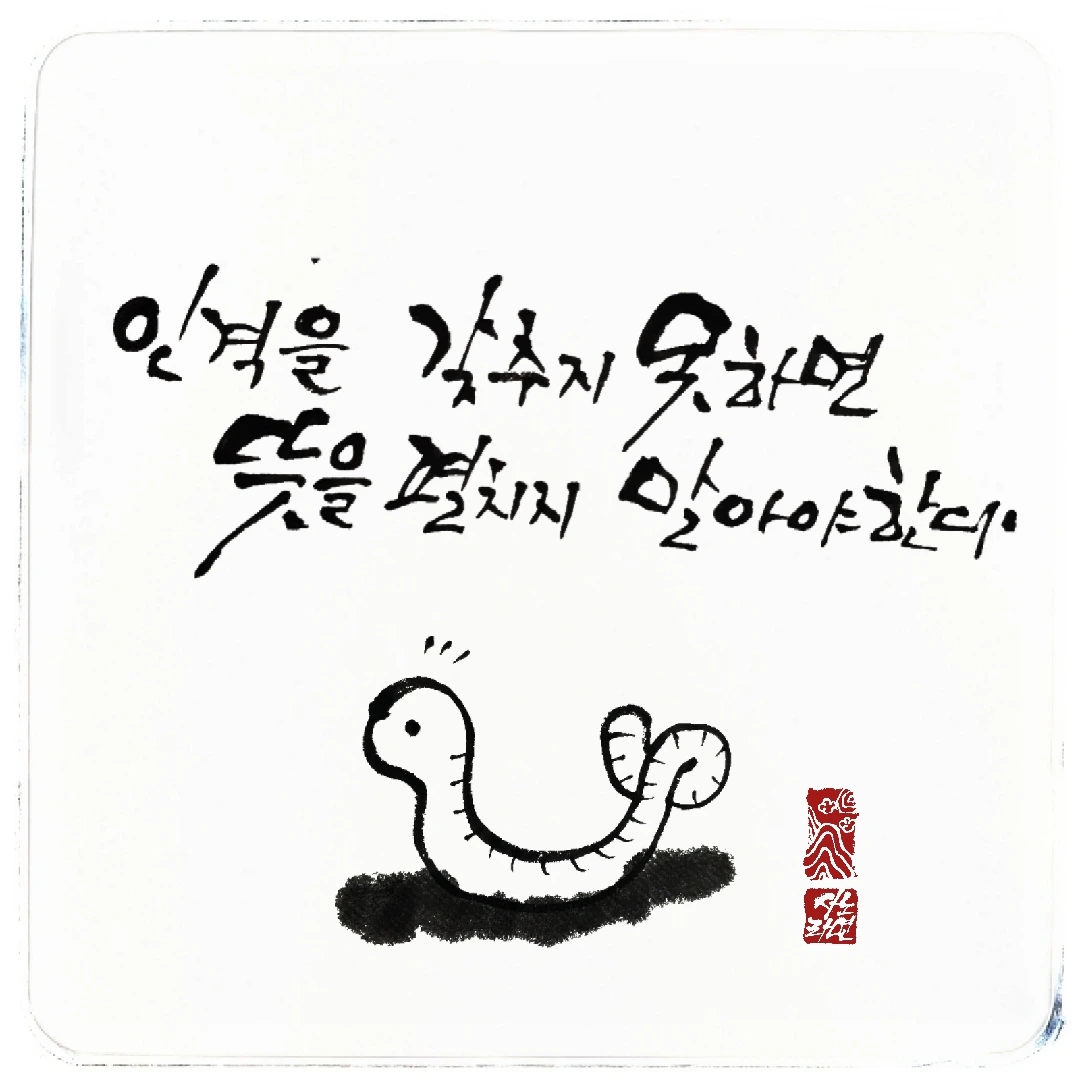 인격을 갖추지 못하면
뜻을 펼치지 말아야한다.